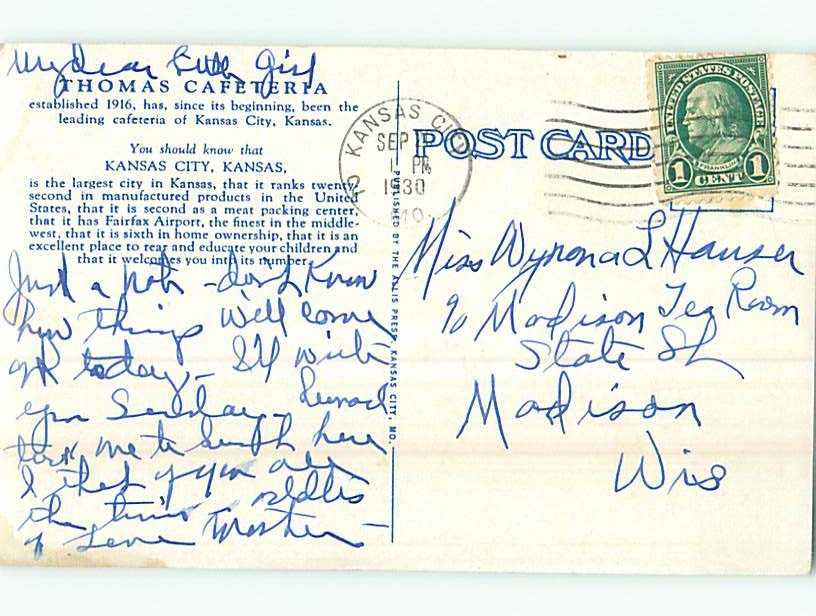 My dear Little Girl
THOMAS CAFETERIA
established 1916, has, since its beginning, been the
leading cafeteria of Kansas City, Kansas.
You should know that
KANSAS CITY, KANSAS,
is the largest city in Kansas, that it ranks twenty-
second in manufactured products in the United
States, that it is second as a meat packing center,
that it has Fairfax Airport, the finest in the middle-
west, that it is sixth in home ownership, that it is an
excellent place to rear and educate your children and
that it welcomes you into its number.
Just a note - don't know
how things will come
out today - I'll write
you Sunday -
took me to lunch here
I that of you all
the time
Love Mother -
PUBLISHED BY THE ALLIS PRESS, KANSAS CITY, MO.
KANSAS CITY
SEP
PM
1930
MO.
POST CARD
UNITED STATES POSTAGE
FRANKLIN
1 CENT 1
Miss Wynona L Hauser
% Madison Tea Room
State St
Madison
Wis